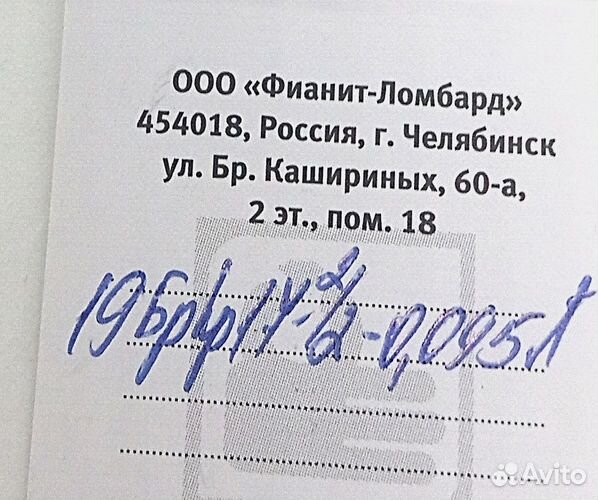 ООО «Фианит-Ломбард»
454018, Россия, г. Челябинск
ул. Бр. Кашириных, 60-а,
2 эт., пом. 18
19бркр17-2/2-0,095А
Avito